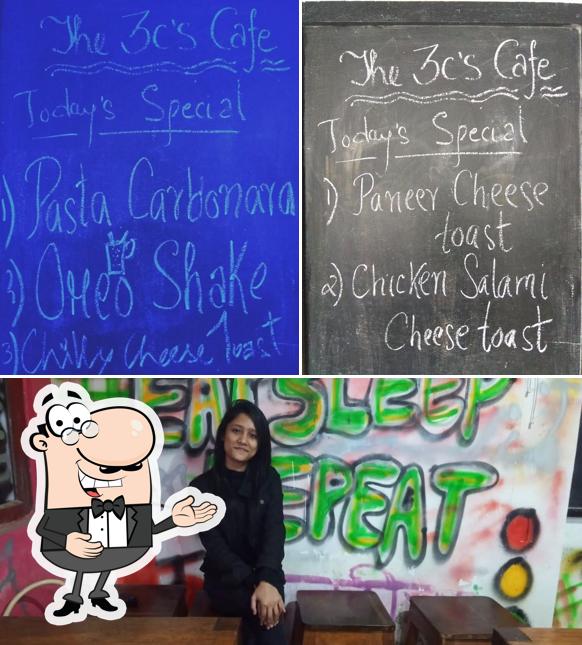 The 3c's Cafe
Today's Special
1) Pasta Carbonara
2) Oreo Shake
3) Chilly Cheese Toast
The 3c's Cafe
Today's Special
1) Paneer Cheese
toast
2) Chicken Salami
Cheese toast
EAT SLEEP
REPEAT